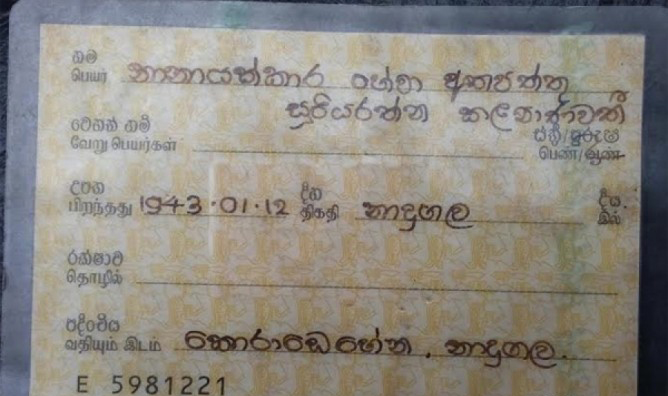 නම
பெயர் නානායක්කාර හේවා අතපත්තු
සූරියරත්න කල්‍යාණවතී
වෙනත් නම්
வேறு பெயர்கள்
ස්ත්‍රී/පුරුෂ
பெண்/ஆண்
උපන
பிறந்தது 1943.01.12 දින
திகதி නාදුගල දීය.
இல்
රක්ෂාව
தொழில்
පදිංචිය
வதியும் இடம் කොරාඩෙහේන, නාදුගල.
E 5981221